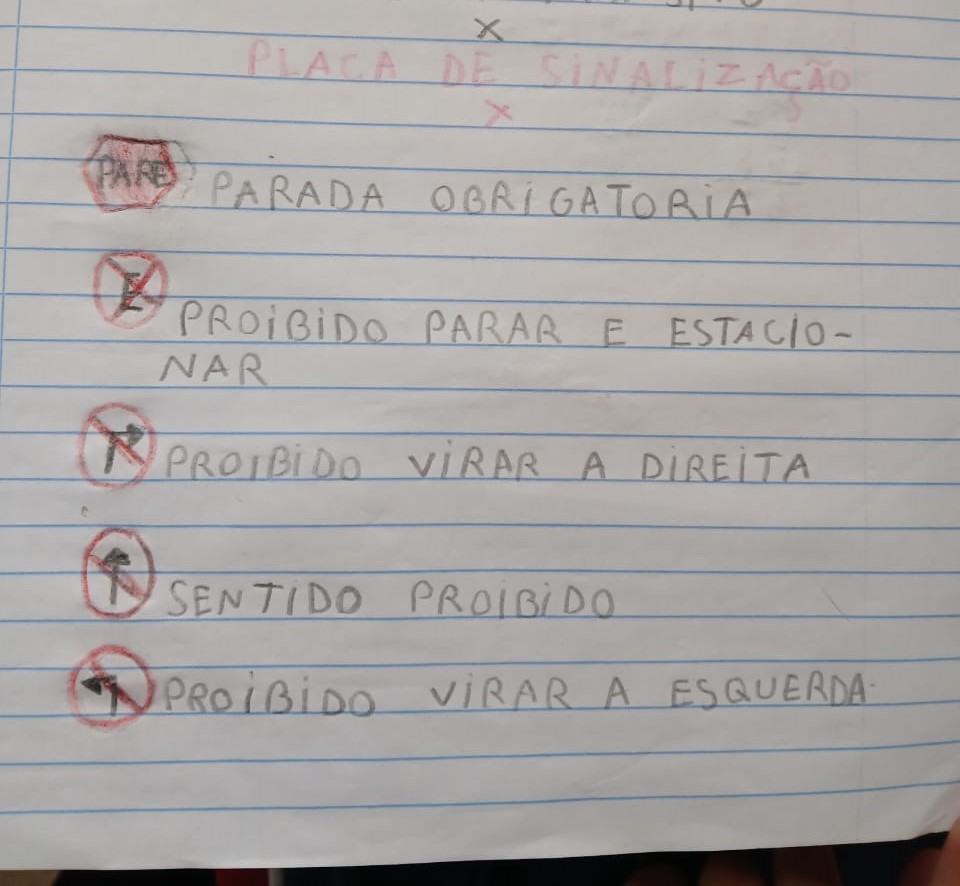 X
PLACA DE SINALIZAÇÃO
X
PARE PARADA OBRIGATORIA
E PROIBIDO PARAR E ESTACIO-
NAR
PROIBIDO VIRAR A DIREITA
SENTIDO PROIBIDO
PROIBIDO VIRAR A ESQUERDA.